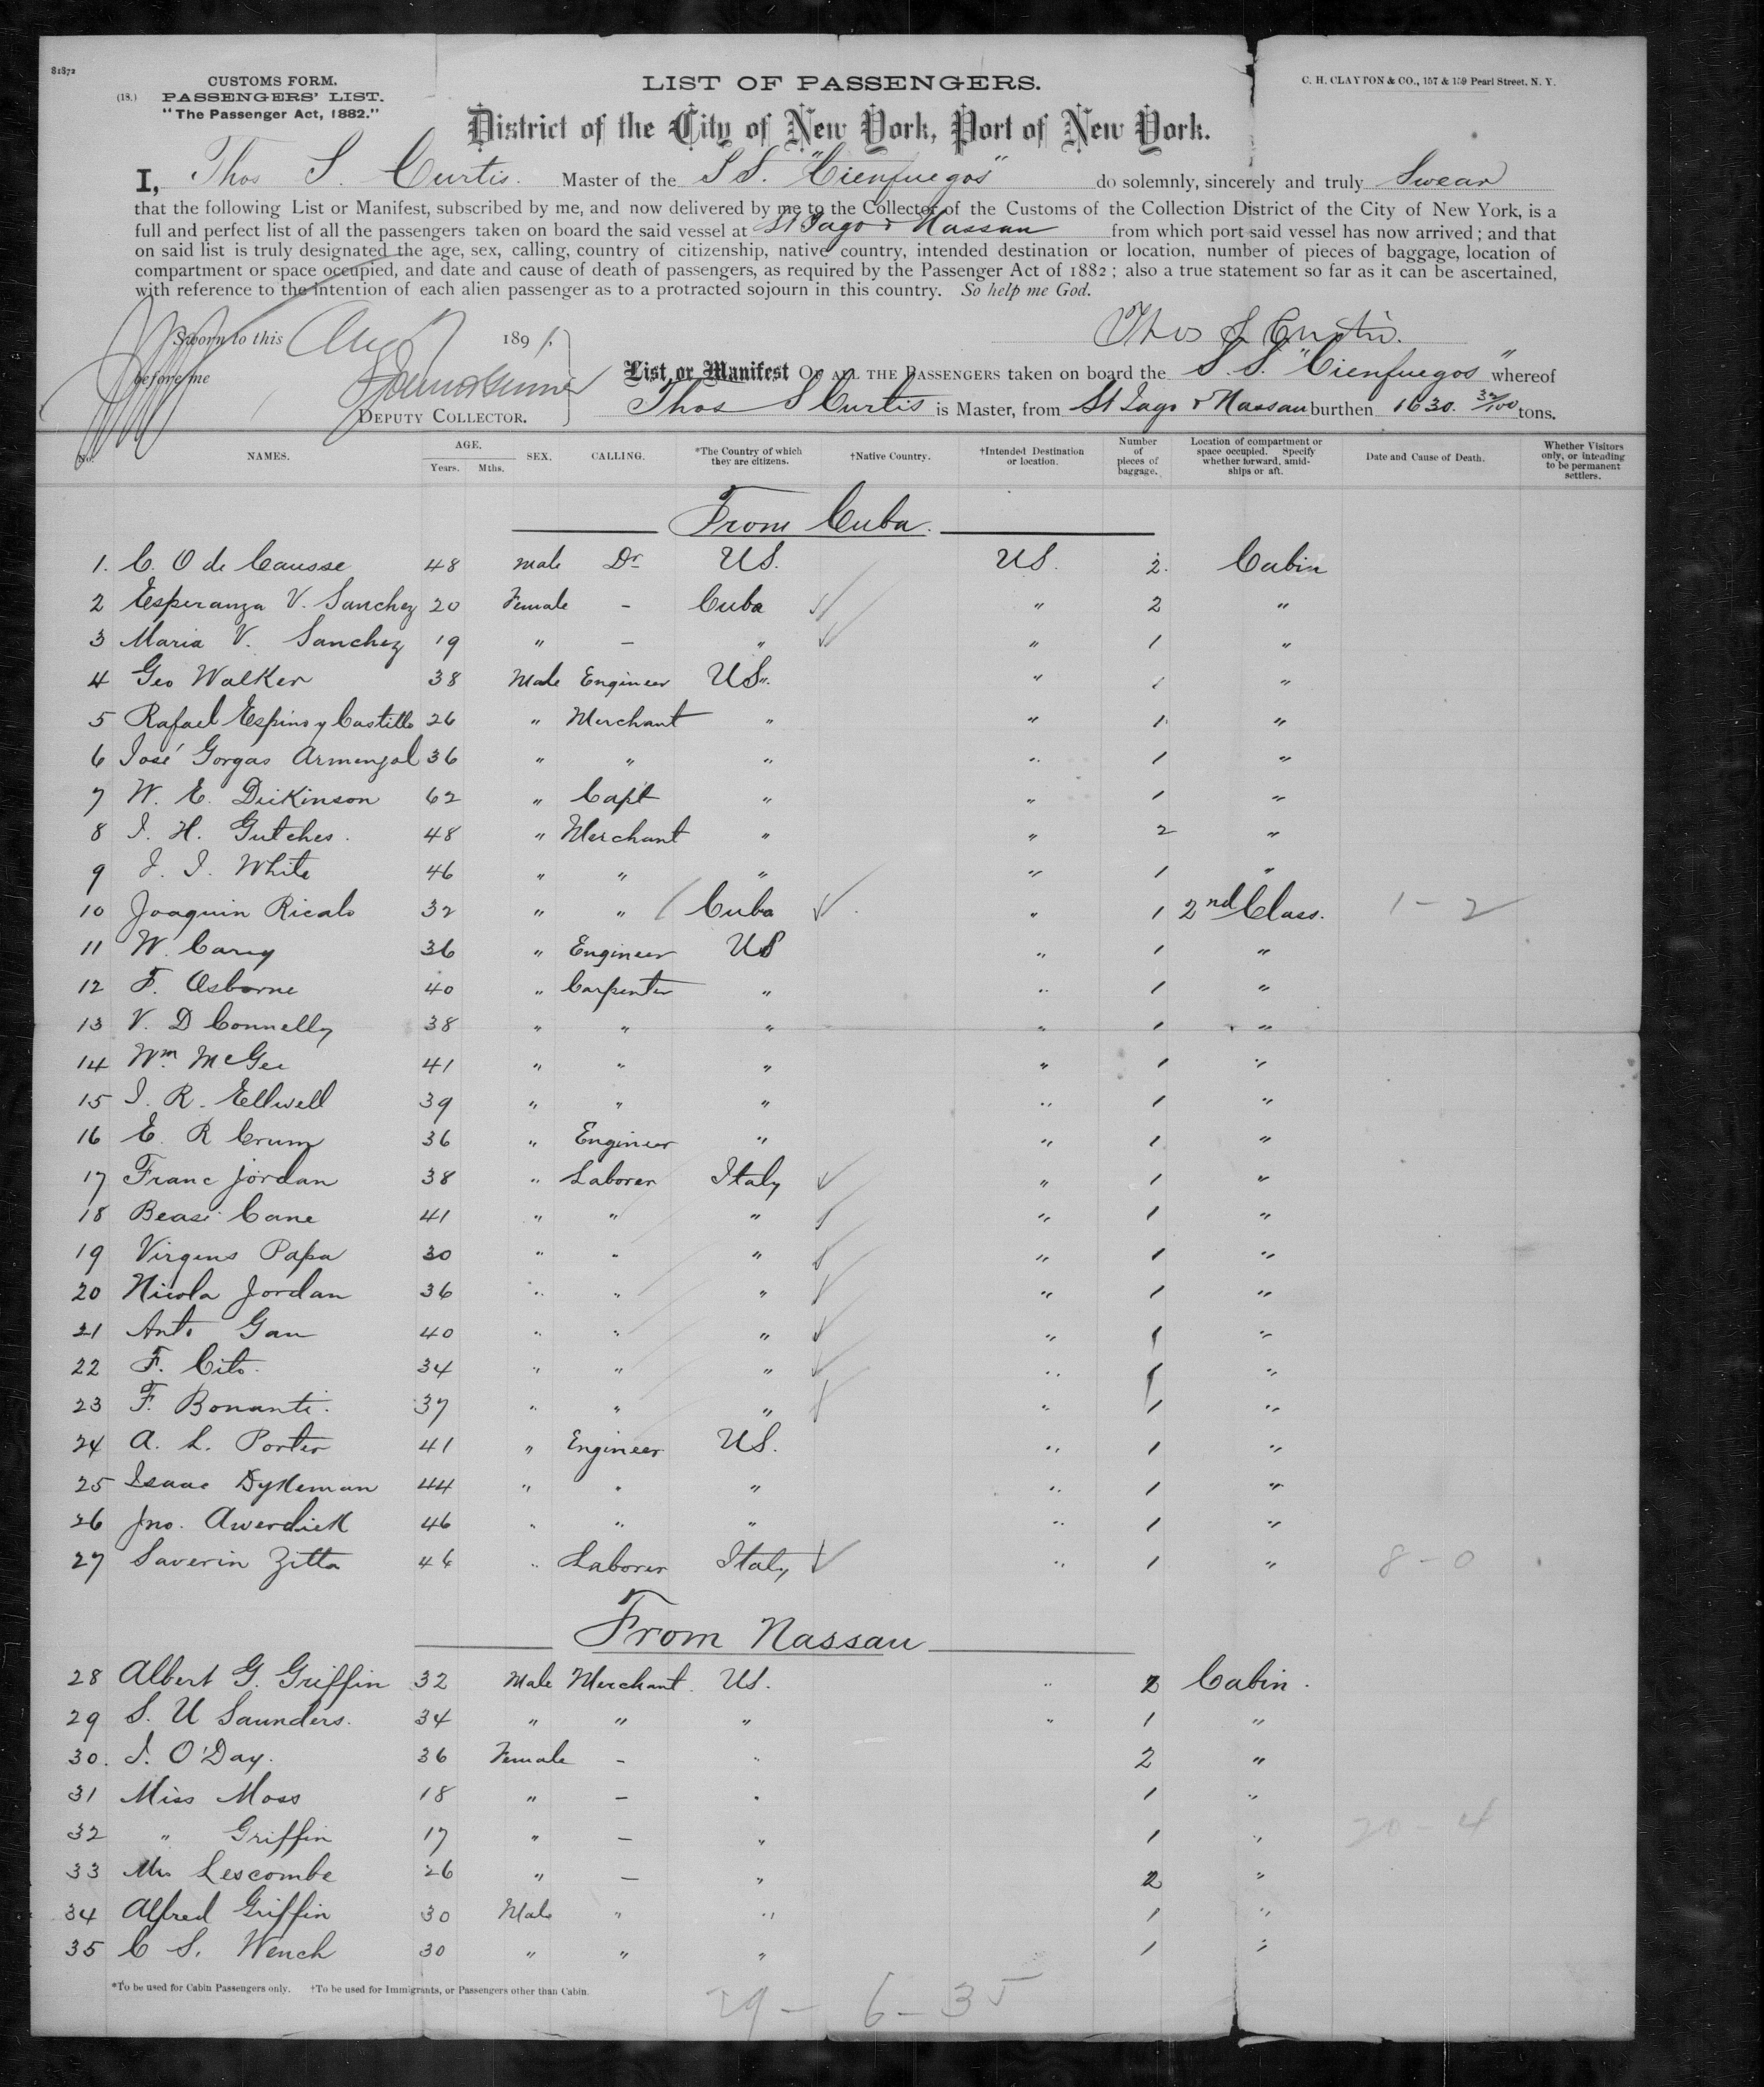 81872
CUSTOMS FORM.
(18.) PASSENGERS' LIST.
"The Passenger Act, 1882."
LIST OF PASSENGERS.
C. H. CLAYTON & CO., 157 & 159 Pearl Street, N. Y.
District of the City of New York, Port of New York.
I, Thos S. Curtis. Master of the S S. "Cienfuegos" do solemnly, sincerely and truly Swear
that the following List or Manifest, subscribed by me, and now delivered by me to the Collector of the Customs of the Collection District of the City of New York, is a
full and perfect list of all the passengers taken on board the said vessel at St Iago & Nassau from which port said vessel has now arrived; and that
on said list is truly designated the age, sex, calling, country of citizenship, native country, intended destination or location, number of pieces of baggage, location of
compartment or space occupied, and date and cause of death of passengers, as required by the Passenger Act of 1882; also a true statement so far as it can be ascertained,
with reference to the intention of each alien passenger as to a protracted sojourn in this country. So help me God.
Sworn to this Aug 7 1891.
Thos S Curtis.
before me
DEPUTY COLLECTOR.
List or Manifest OF ALL THE PASSENGERS taken on board the S. S. "Cienfuegos" whereof
Thos S Curtis is Master, from St Iago & Nassau burthen 1630. 32/100 tons.
No. NAMES. AGE. Years. Mths. SEX. CALLING. *The Country of which they are citizens. †Native Country. †Intended Destination or location. Number of pieces of baggage. Location of compartment or space occupied. Specify whether forward, amidships or aft. Date and Cause of Death. Whether Visitors only, or intending to be permanent settlers.
From Cuba.
1. C. O de Causse 48 male Dr US. US. 2. Cabin
2 Esperanza V. Sanchez 20 Female - Cuba " 2 "
3 Maria V. Sanchez 19 " - " " 1 "
4 Geo Walker 38 Male Engineer US. " 1 "
5 Rafael Espino y Castillo 26 " Merchant " " 1 "
6 José Gorgas Armengol 36 " " " " 1 "
7 W. E. Dickinson 62 " Capt " " 1 "
8 I. H. Gutches. 48 " Merchant " " 2 "
9 J. I. White 46 " " " " 1 "
10 Joaquin Ricalo 32 " " Cuba " 1 2nd Class. 1-2
11 W. Carey 36 " Engineer US " 1 "
12 F. Osborne 40 " Carpenter " " 1 "
13 V. D Connelly 38 " " " " 1 "
14 Wm. McGee 41 " " " " 1 "
15 I. R. Ellwell 39 " " " " 1 "
16 E. R Crum 36 " Engineer " " 1 "
17 Franc Jordan 38 " Laborer Italy " 1 "
18 Beasi Cane 41 " " " " 1 "
19 Virgens Papa 30 " " " " 1 "
20 Nicola Jordan 36 " " " " 1 "
21 Anto Gau 40 " " " " 1 "
22 F. Cito. 34 " " " " 1 "
23 F. Bonanti. 37 " " " " 1 "
24 A. L. Porter 41 " Engineer US. " 1 "
25 Isaac Dykeman 44 " " " " 1 "
26 Jno. Awerdick 46 " " " " 1 "
27 Saverin Zitta 46 " Laborer Italy " 1 " 8-0
From Nassau
28 Albert G. Griffin 32 Male Merchant. US. " 2 Cabin.
29 S. U Saunders. 34 " " " " 1 "
30. I. O'Day. 36 Female - " 2 "
31 Miss Moss 18 " - " 1 "
32 " Griffin 17 " - " 1 " 20-4
33 Mrs Lescombe 26 " - " 2 "
34 Alfred Griffin 30 Male " " 1 "
35 C S. Wench 30 " " " 1 "
*To be used for Cabin Passengers only. †To be used for Immigrants, or Passengers other than Cabin.
29- 6-35